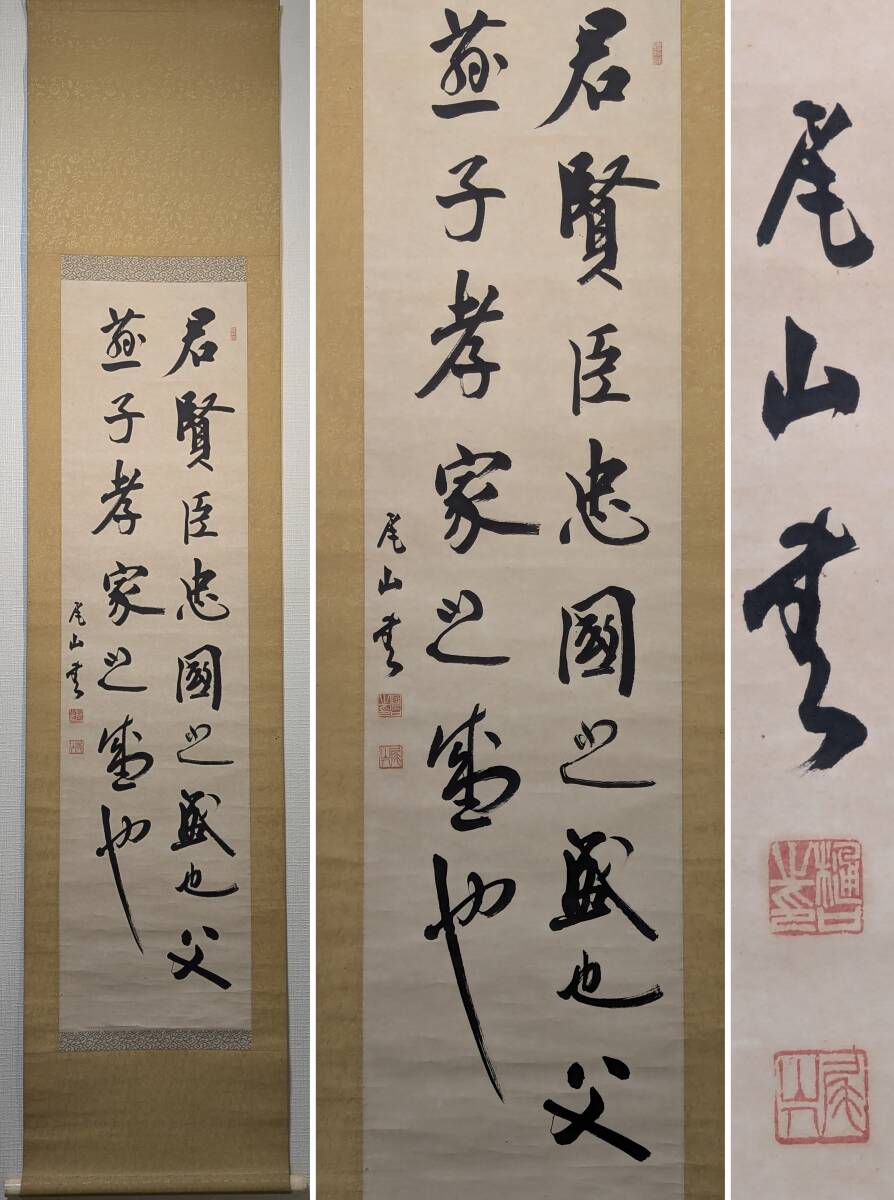 君賢臣忠國之盛也父
慈子孝家之盛也
尾山書
君賢臣忠國之盛也父
慈子孝家之盛也
尾山書
尾山書
樋口之印
尾山